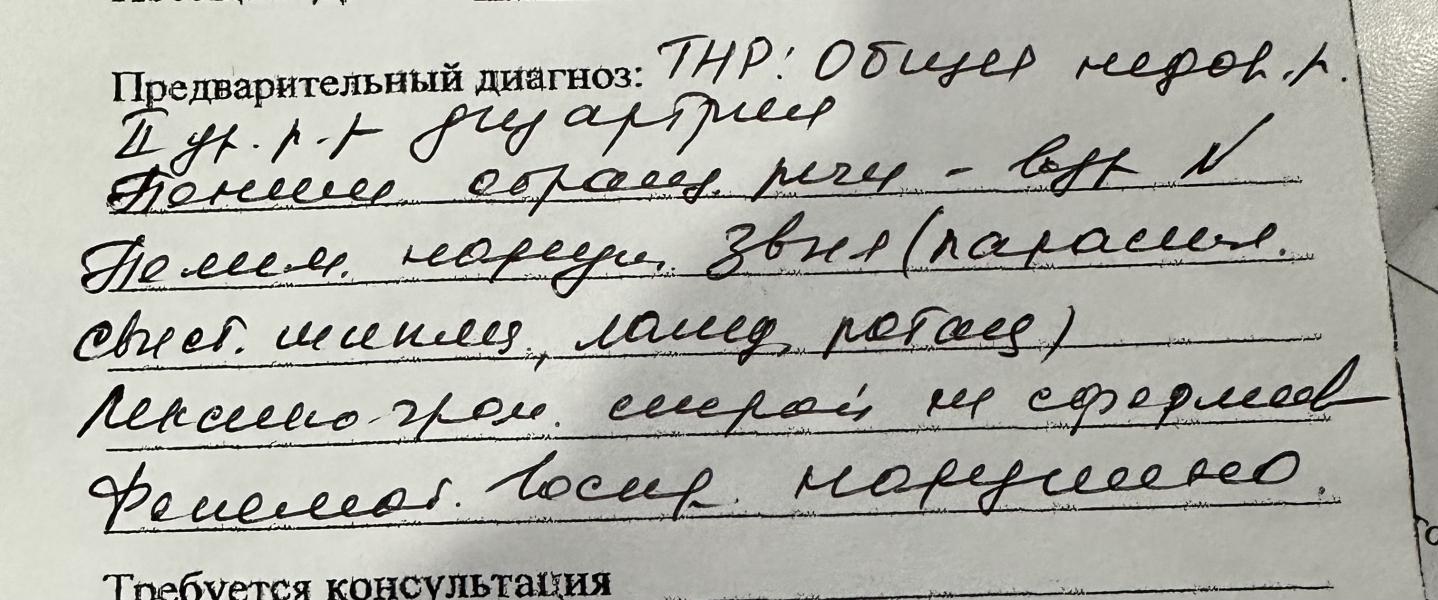 Предварительный диагноз: ТНР: Общее недор. р.
II ур. р.р дизартрия
Поним обращ. речи - внутр N
Полим. наруш. звпр (парасигм.
свист. шипящ, ламбд, ротац)
Лексико-грам. строй не сформиров
Фонемат. воспр. нарушено.
Требуется консультация